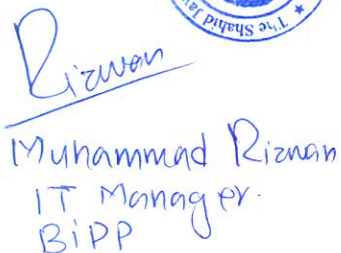 The Shahid Jav
Rizwan
Muhammad Rizwan
IT Manager.
BiPP